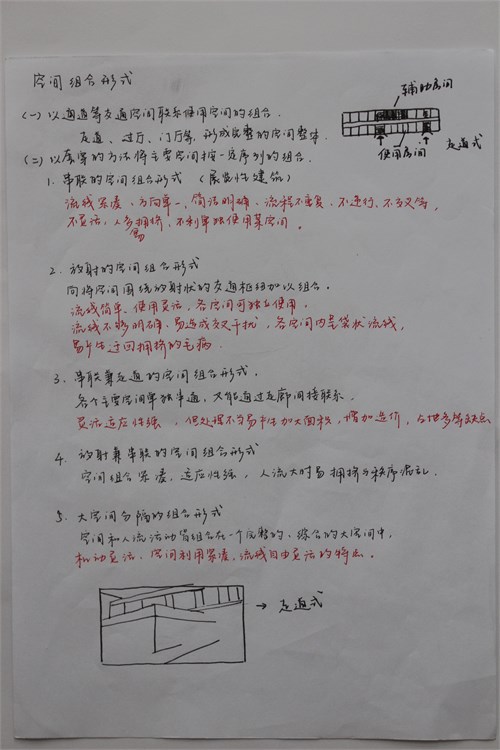 空间组合形式
(一) 以通道等交通空间联系使用空间的组合.
走道、过厅、门厅等,形成完整的空间整体.
(二) 以套穿的方法将主要空间按一定序列的组合.
辅助房间
使用房间
走道式
1. 串联的空间组合形式 (展览性建筑)
流线紧凑、方向单一,简洁明确、流程不重复、不逆行、不交叉等,
不灵活,人多易拥挤,不利单独使用某房间。
2. 放射的空间组合形式
向将空间围绕放射状的交通枢纽加以组合。
流线简单、使用灵活,各空间可独立使用,
流线不够明确、易造成交叉干扰,各空间内是袋状流线,
易产生迂回拥挤的毛病.
3. 串联兼走道的空间组合形式,
各个主要空间单独串通,又能通过走廊间接联系.
灵活适应性强,但处理不当易产生加大面积,增加造价,占地多等缺点
4. 放射兼串联的空间组合形式
空间组合紧凑,适应性强,人流大时易拥挤与秩序混乱.
5. 大空间分隔的组合形式
空间和人流活动皆组合在一个完整的、综合的大空间中,
机动灵活、空间利用紧凑、流线自由灵活的特点。
→ 走道式